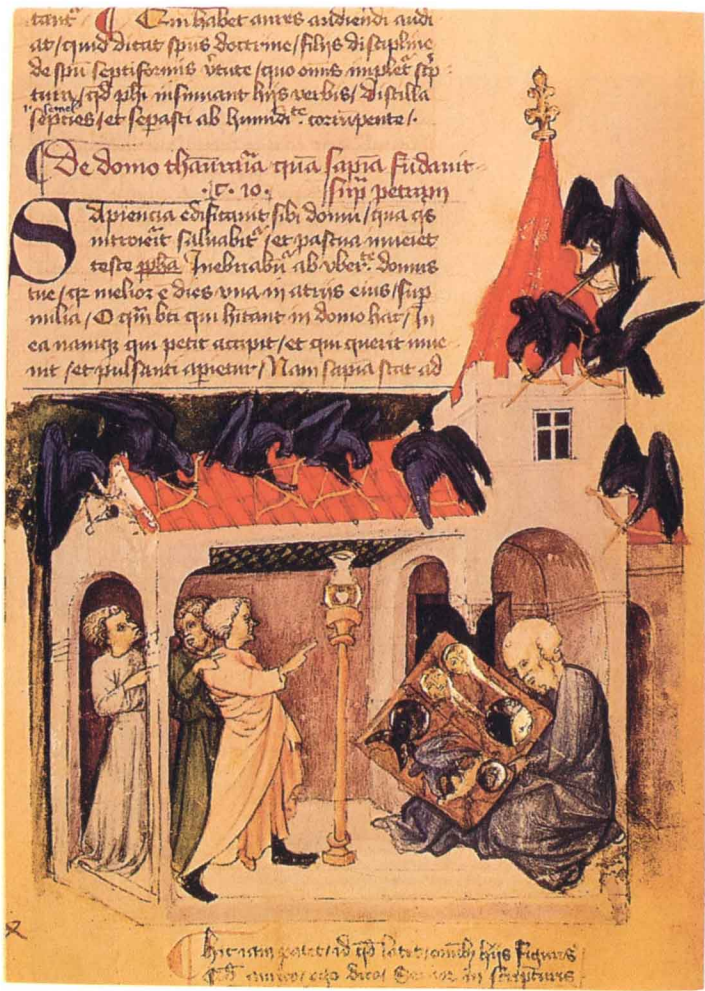 tant᷑ ¶ Qui habet aures audiendi audi
at/quid dicat spūs doctrine/filijs discipline
de spū septiformis v̓tute/quo om̄s implet᷑ sc̄p
tura/q̄d ph̄i insinuant hijs verbis/Distilla
semel
septies/et sepasti ab humidi.te corrūpente/.
¶ De domo thāuraria quā sapīa fūdauit
.C. 10. sup̄ petram
Sapiencia edificauit sibi domū/quā qs
introierit saluabit᷑/et pascua inueiet
teste ppha Inebriabūt᷑ ab vber.te domus
tue/qr melior ē dies vna in atrijs eius/sup
milia/O qm̄ bti qui hitant in domo hac/In
ea namqꝫ qui petit accipit/et qui querit inue
nit/et pulsanti apietur/Nam sapīa stat ad
¶ Hic iam patet/id qd̄ latet/ hijs figuris
dico/ in scripturis